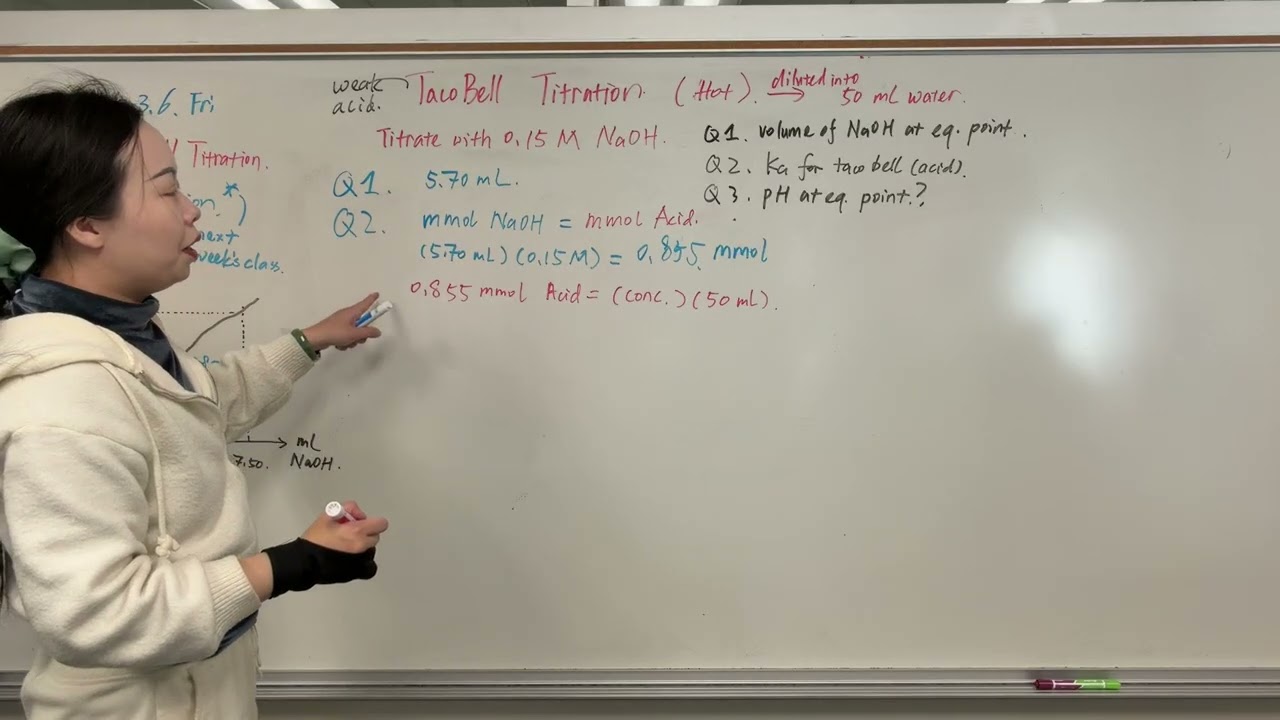 3.6. Fri
Titration.
*)
next
week's class.
mL
7.50. NaOH.
weak
acid.
TacoBell Titration. (Hot). → diluted into
50 mL water.
Titrate with 0.15 M NaOH.
Q1. 5.70 mL.
Q2. mmol NaOH = mmol Acid.
(5.70 mL) (0.15M) = 0.855 mmol
0.855 mmol Acid = (conc.) (50 mL).
Q1. volume of NaOH at eq. point.
Q2. Ka for taco bell (acid).
Q3. pH at eq. point.?